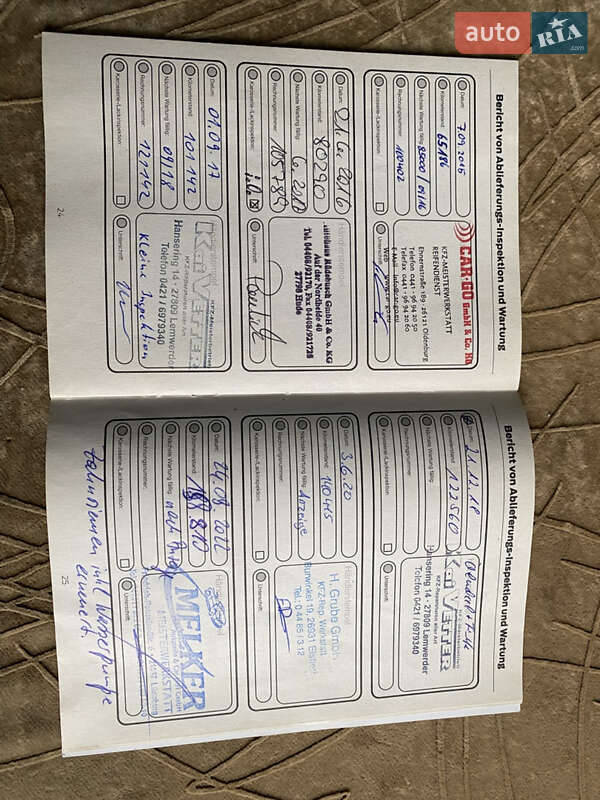 auto RIA .com
Bericht von Ablieferungs-Inspektion und Wartung
Datum: 7.09.2015
Kilometerstand: 65.186
Nächste Wartung fällig: 95000/09/16
Rechnungsnummer: 100402
Karosserie-/Lackinspektion:
CAR-GO GmbH & Co.
KFZ-MEISTERWERKSTATT
REIFENDIENST
Ehnernstraße 189 · 26121 Oldenburg
Telefon 0441 - 96 94 20 50
Telefax 0441 - 96 94 20 60
Unterschrift:
Datum: 21.6.2016
Kilometerstand: 80290
Nächste Wartung fällig: 6.2017
Rechnungsnummer: 105789
Karosserie-/Lackinspektion: i.O.
Autohaus Rüdebusch GmbH & Co. KG
Auf der Nordheide 40
27798 Hude
Unterschrift:
Datum: 01.09.17
Kilometerstand: 101 142
Nächste Wartung fällig: 09/18
Rechnungsnummer: 121142
Karosserie-/Lackinspektion:
Kai Vetter
KFZ-Reparaturen aller Art
Hansering 14 - 27809 Lemwerder
Telefon 0421 / 6979340
Unterschrift:
kleine Inspektion
24
Bericht von Ablieferungs-Inspektion und Wartung
Datum: 21.12.18
Kilometerstand: 122560
Nächste Wartung fällig:
Rechnungsnummer:
Karosserie-/Lackinspektion:
Kai Vetter
KFZ-Reparaturen aller Art
Hansering 14 - 27809 Lemwerder
Telefon 0421 / 6979340
Unterschrift:
Datum: 3.6.20
Kilometerstand: 140415
Nächste Wartung fällig: Anzeige
Rechnungsnummer:
Karosserie-/Lackinspektion:
Händlerstempel
H. Grube GmbH
KFZ-Rep. Werkstatt
Burwinkel 19, 26931 Elsfleth
Tel.: 0 44 85 / 3 12
Unterschrift:
Datum: 24.08.2022
Kilometerstand: 810
Nächste Wartung fällig: nach Anzeige
Rechnungsnummer:
Karosserie-/Lackinspektion:
MELKER
MEISTERWERKSTATT
Unterschrift:
Zahnriemen inkl Wasserpumpe
erneuert.
25